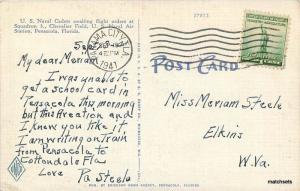 U. S. Naval Cadets awaiting flight orders at
Squadron 1, Chevalier Field, U. S. Naval Air
Station, Pensacola, Florida.
27873
PANAMA CITY, FLA.
1941
Sept
My dear Meriam
I was unable to
get a school card in
Pensacola this morning
but this creation and I
know you like it.
I am writing on train
from Pensacola to
Cottondale Fla
Love Pa Steele
POST CARD
Miss Meriam Steele
Elkins
W. Va.
PENSACOLA, FLORIDA
matchsets